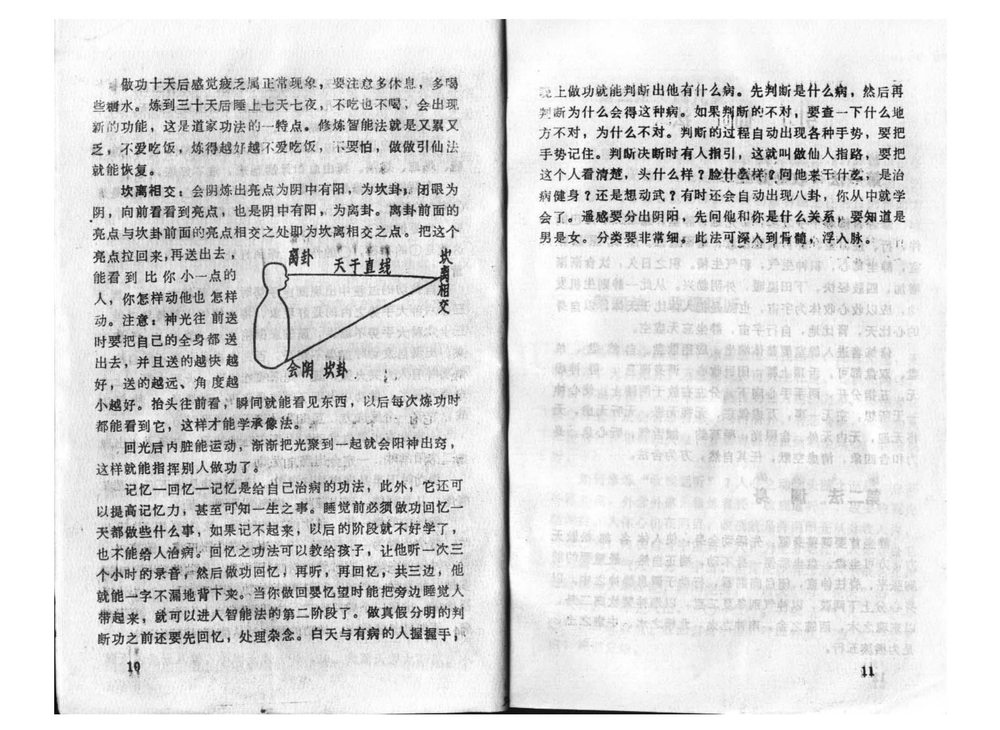 做功十天后感觉疲乏属正常现象，要注意多休息，多喝
些糖水。炼到三十天后睡上七天七夜，不吃也不喝，会出现
新的功能，这是道家功法的一特点。修炼智能法就是又累又
乏，不爱吃饭，炼得越好越不爱吃饭，不要怕，做做引仙法
就能恢复。
坎离相交：会阴炼出亮点为阴中有阳，为坎卦；闭眼为
阴，向前看看到亮点，也是阴中有阳，为离卦。离卦前面的
亮点与坎卦前面的亮点相交之处即为坎离相交之点。把这个
亮点拉回来，再送出去，
能看到比你小一点的
人，你怎样动他也怎样
动。注意：神光往前送
时要把自己的全身都送
出去，并且送的越快越
好，送的越远、角度越
小越好。抬头往前看，瞬间就能看见东西，以后每次炼功时
都能看到它，这样才能学承像法。
离卦
天干直线
坎离相交
会阴 坎卦
回光后内脏能运动，渐渐把光聚到一起就会阳神出窍，
这样就能指挥别人做功了。
记忆一回忆一记忆是给自己治病的功法，此外，它还可
以提高记忆力，甚至可知一生之事。睡觉前必须做功回忆一
天都做些什么事，如果记不起来，以后的阶段就不好学了，
也不能给人治病。回忆之功法可以教给孩子，让他听一次三
个小时的录音，然后做功回忆，再听，再回忆，共三边，他
就能一字不漏地背下来。当你做回婴忆望时能把旁边睡觉人
带起来，就可以进人智能法的第二阶段了。做真假分明的判
断功之前还要先回忆，处理杂念。白天与有病的人握握手，
10
晚上做功就能判断出他有什么病。先判断是什么病，然后再
判断为什么会得这种病。如果判断的不对，要查一下什么地
方不对，为什么不对。判断的过程自动出现各种手势，要把
手势记住。判断决断时有人指引，这就叫做仙人指路，要把
这个人看清楚，头什么样？脸什么样？问他来干什么，是治
病健身？还是想动武？有时还会自动出现八卦，你从中就学
会了。遥感要分出阴阳，先问他和你是什么关系，要知道是
男是女。分类要非常细。此法可深入到骨髓，浮入脉。
11